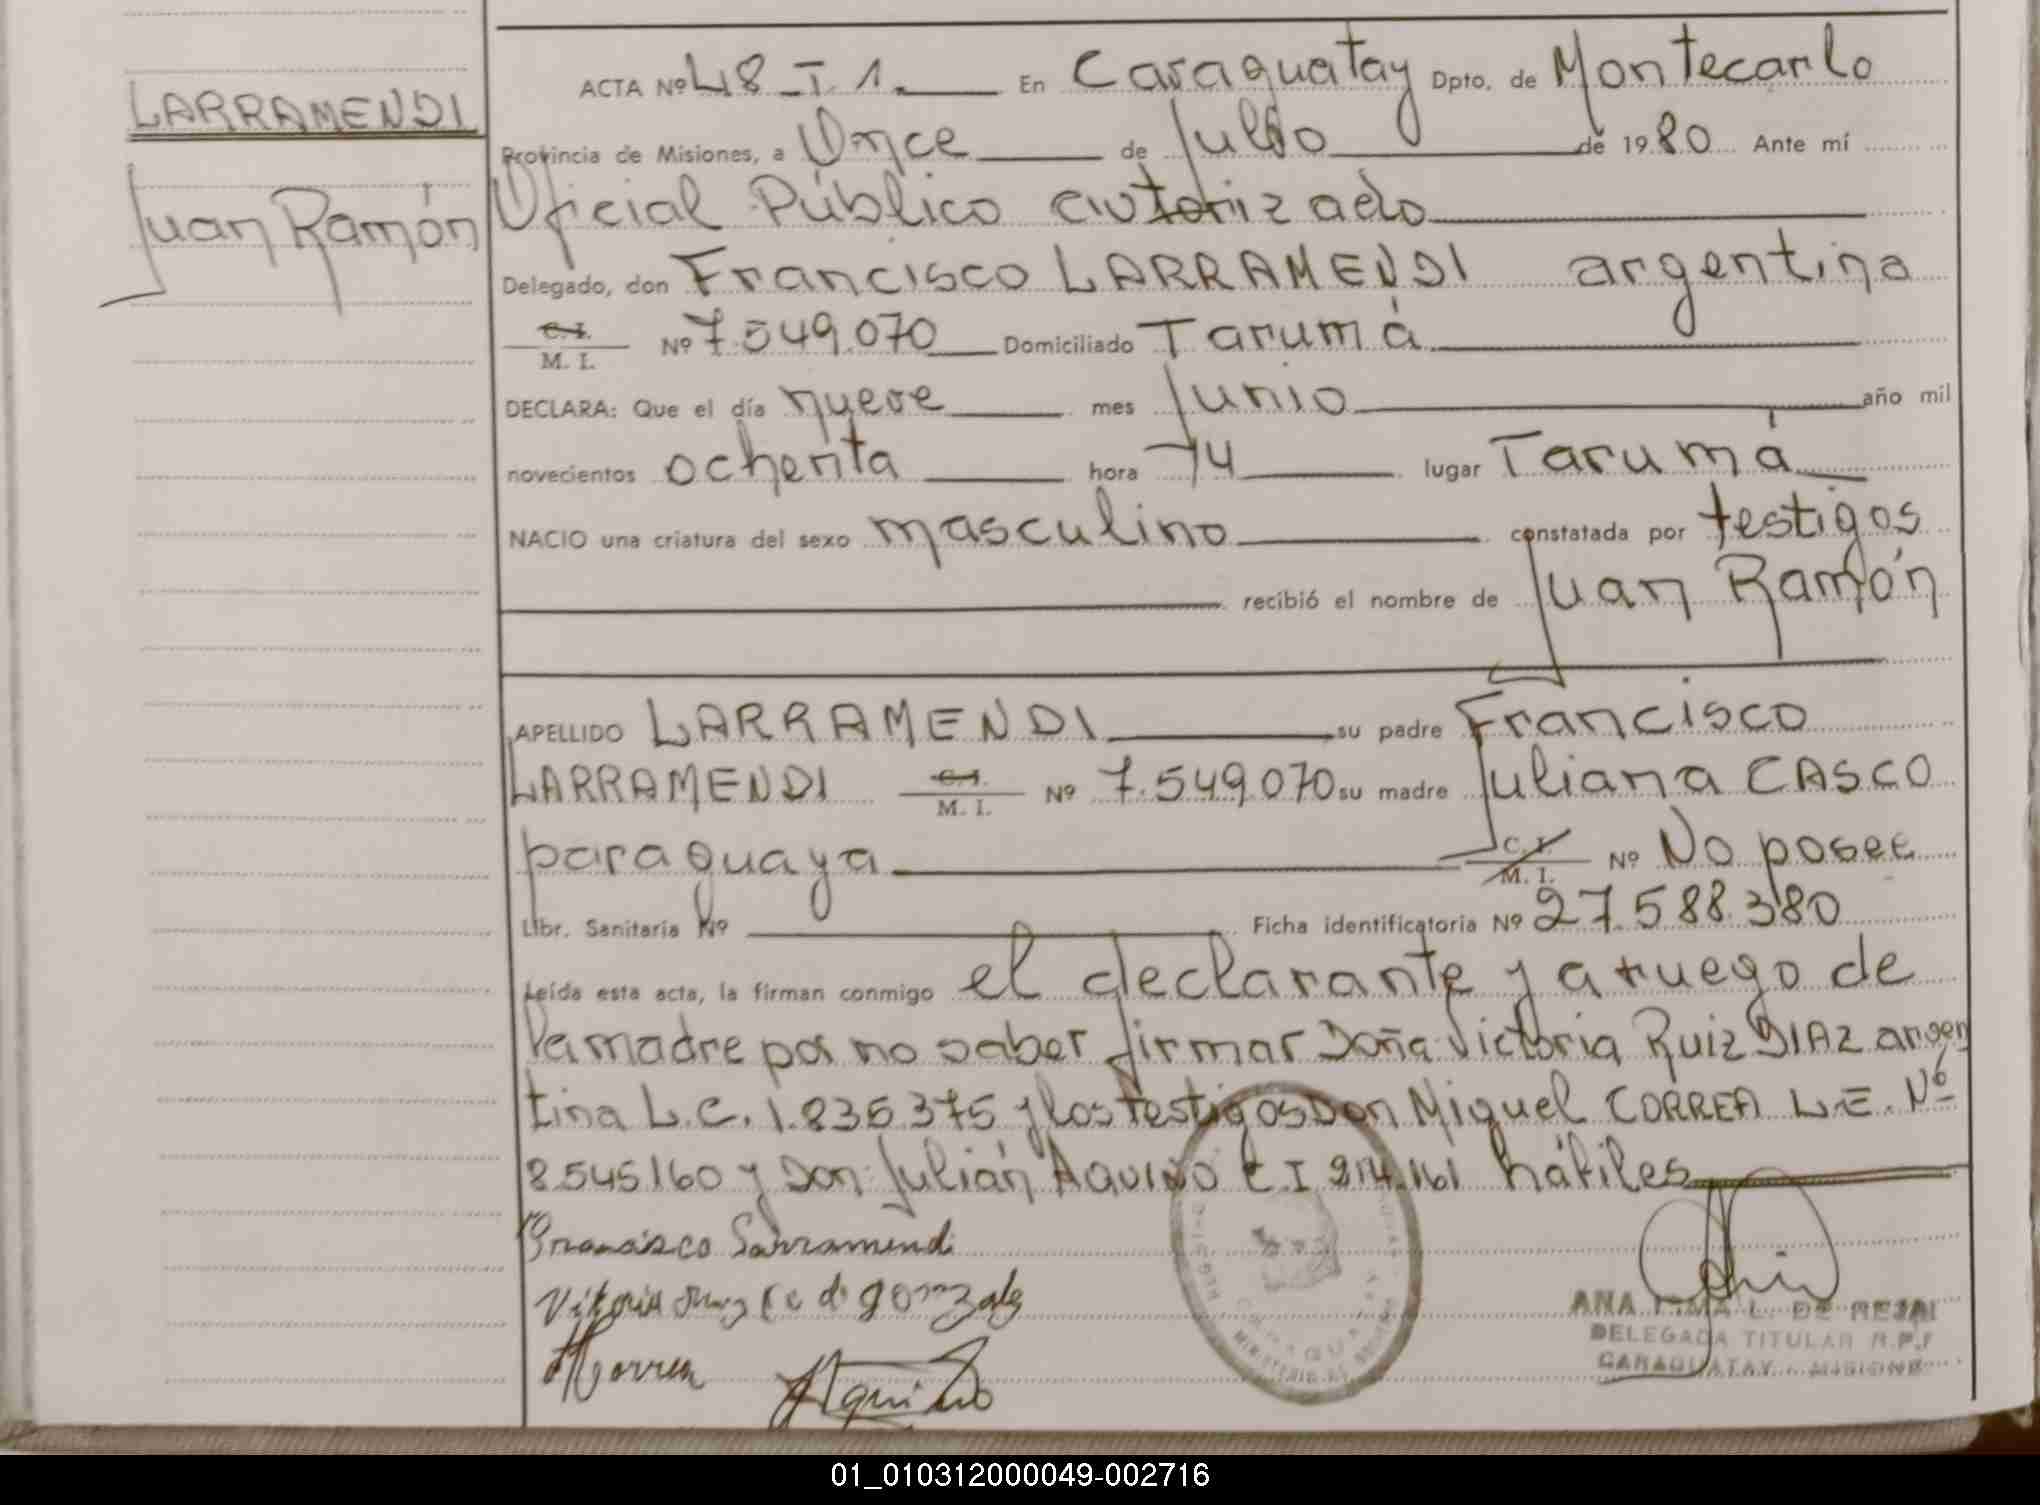 LARRAMENDI
Juan Ramón
ACTA Nº 48 - T. 1. En Caraguatay Dpto. de Montecarlo
Provincia de Misiones, a Once de Julio de 1980 Ante mí
Oficial Público autorizado
Delegado, don Francisco LARRAMENDI argentina
C. I. / M. I. Nº 7.549.070 Domiciliado Tarumá
DECLARA: Que el día nueve mes Junio año mil
novecientos ochenta hora 14 lugar Tarumá
NACIO una criatura del sexo masculino constatada por testigos
recibió el nombre de Juan Ramón
APELLIDO LARRAMENDI su padre Francisco
LARRAMENDI C. I. / M. I. Nº 7.549.070 su madre Juliana CASCO
paraguaya C. I. / M. I. Nº No posee
Libr. Sanitaria Nº Ficha identificatoria Nº 27.588.380
Leída esta acta, la firman conmigo el declarante y a ruego de
la madre por no saber firmar Doña Victoria Ruiz DIAZ argen
tina L.C. 1.835.375 y los testigos Don Miguel CORREA L.E. Nº
8.545.160 y Don Julián AQUINO C I 214.161 hábiles
Francisco Larramendi
Vitoria de gonzales
Correa
Aquino
ANA L. DE
DELEGADA TITULAR R.P.
CARAGUATAY - MISIONES
01_010312000049-002716